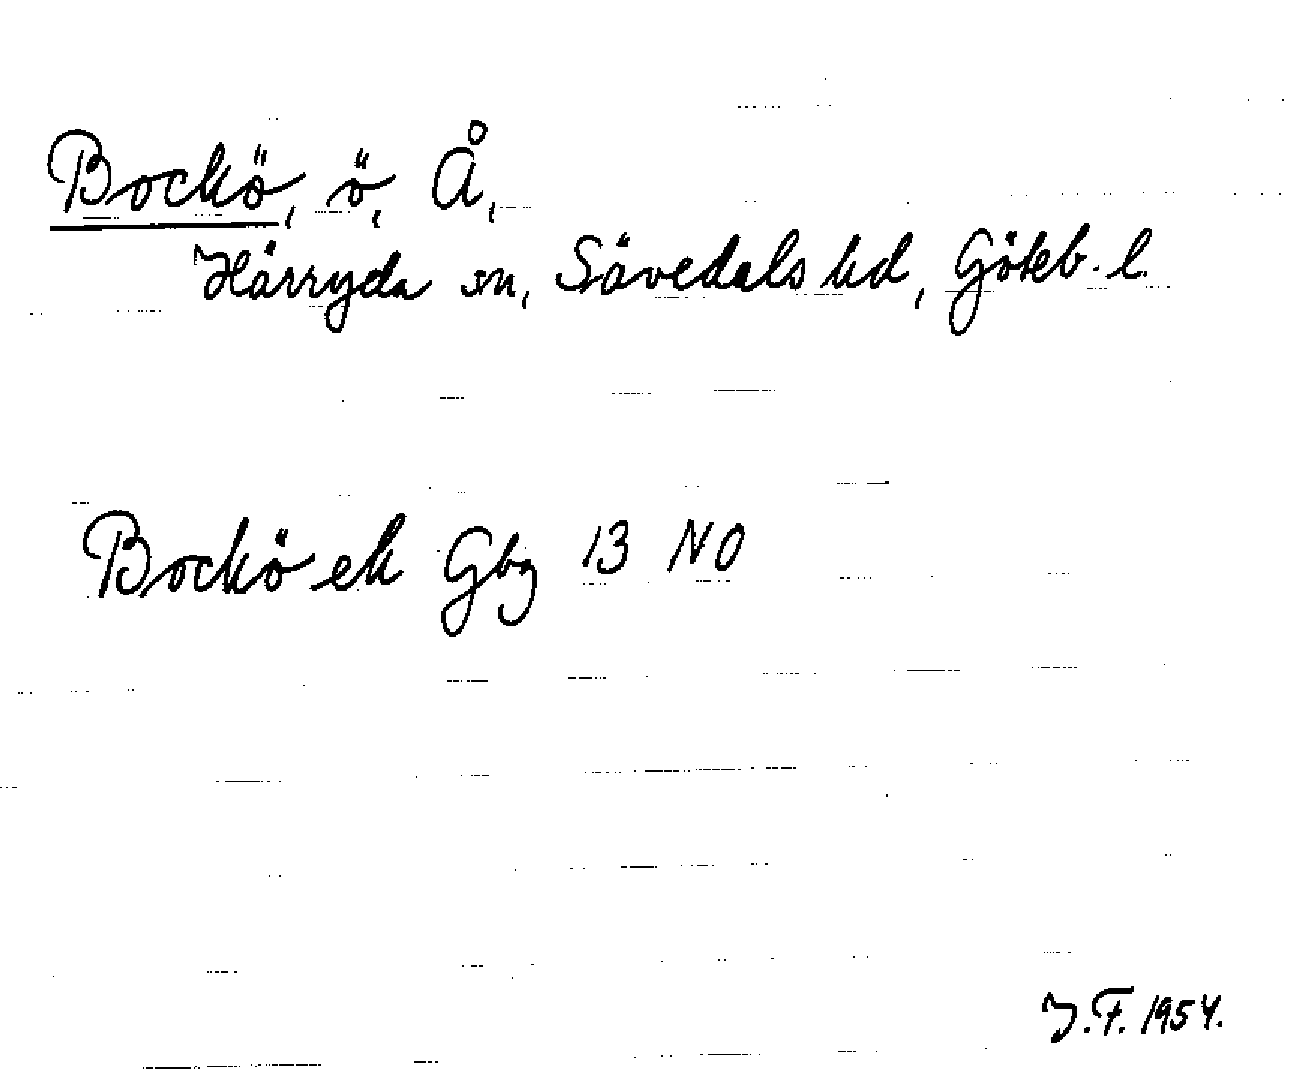 Bockö, ö, Å,
Härryda sn, Sävedals hd, Göteb. l.
Bockö ek Gbg 13 NO
J.F. 1954.